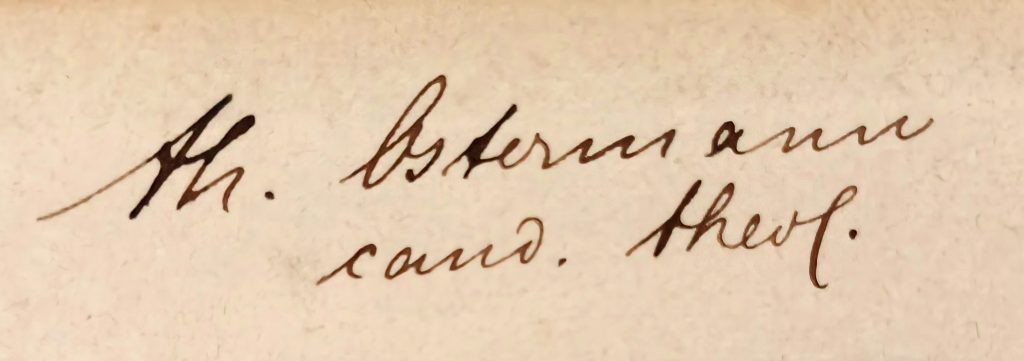 Th. Ostermann
cand. theol.